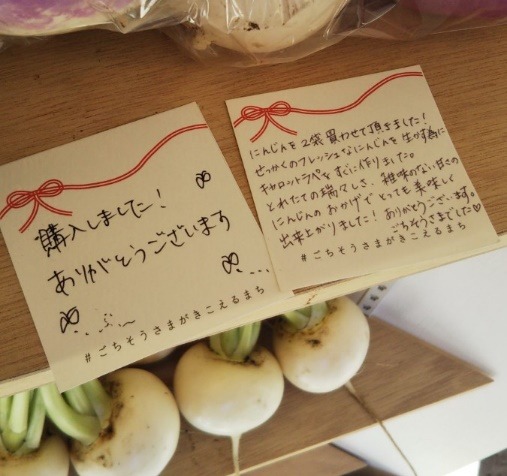 購入しました!
ありがとうございます
#ごちそうさまがきこえるまち
にんじんを2袋買わせて頂きました!
せっかくのフレッシュなにんじんを生かす為に
キャロットラペをすぐに作りました。
とれたての瑞々しさ、雑味のない甘さの
にんじんのおかげでとっても美味しく
出来上がりました!ありがとうございます。
ごちそうさまでした♡
#ごちそうさまがきこえるまち